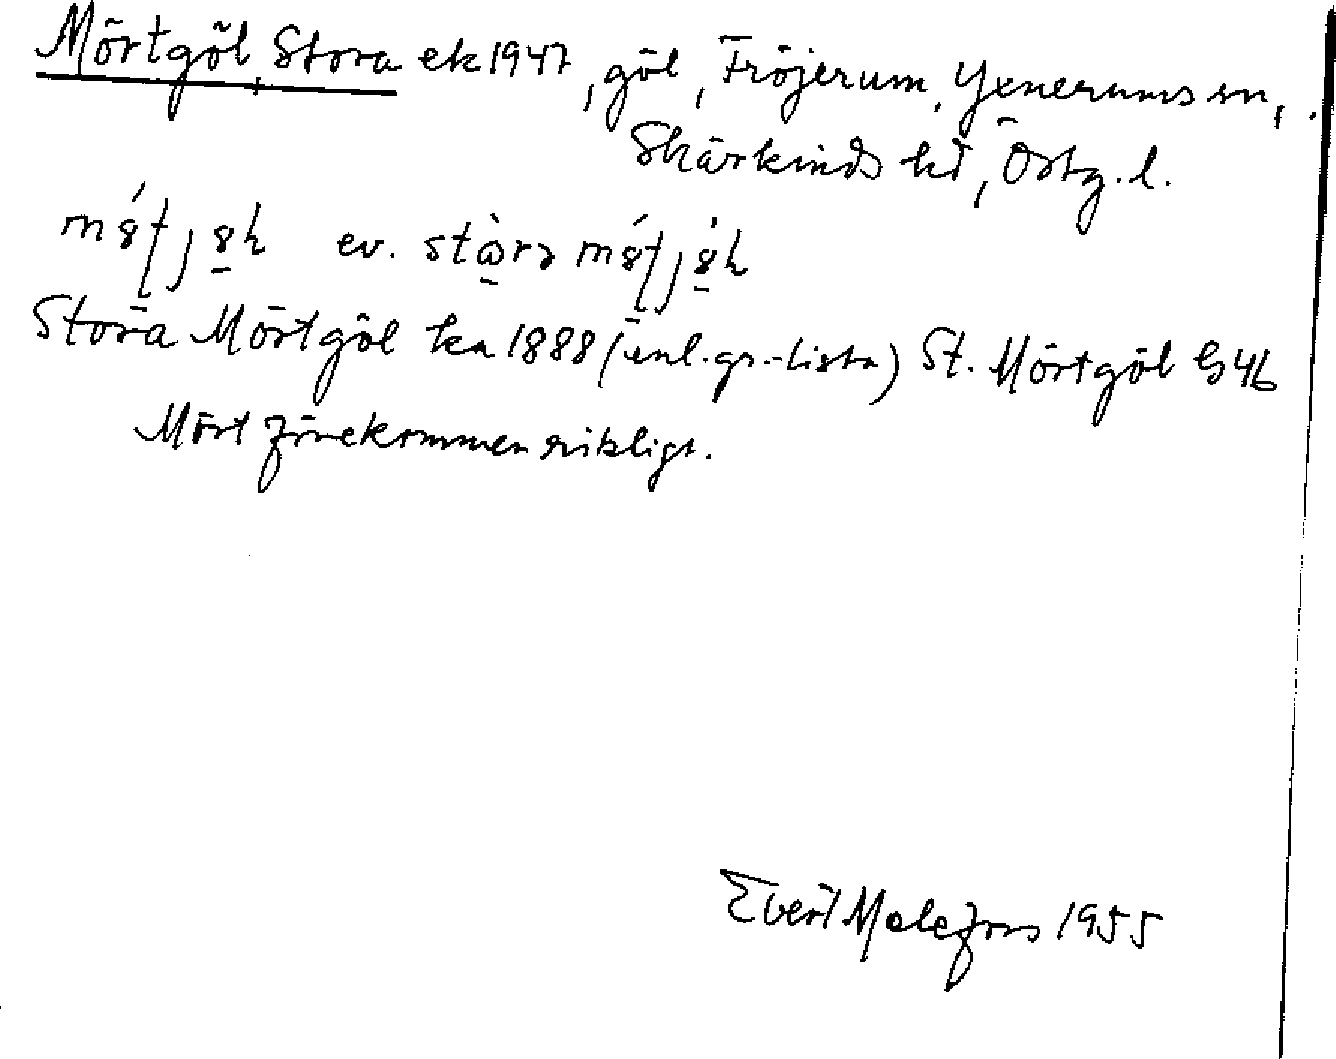 Mörtgöl, Stora ek 1947, göl, Fröjerum, Yxnerums sn,
Skärkinds hd, Östg. l.
ev.
Stora Mörtgöl ka 1888 (inl. gr.-lista) St. Mörtgöl G 46
Mört förekommer rikligt.
Evert Melefors 1955